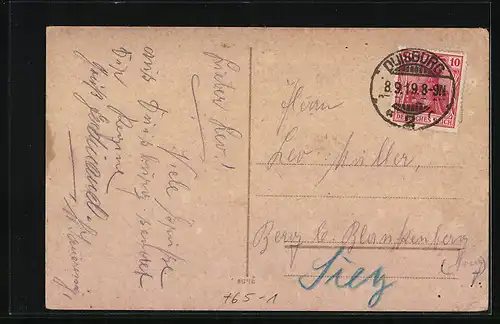 Lieber Leo!
Viele Grüße
aus Duisburg sendet
Der kleine
DUISBURG
8.9.19.8-9N
2
10
DEUTSCHES REICH
Herrn
Leo Müller
Berg b. Blankenberg
Sieg
765-1